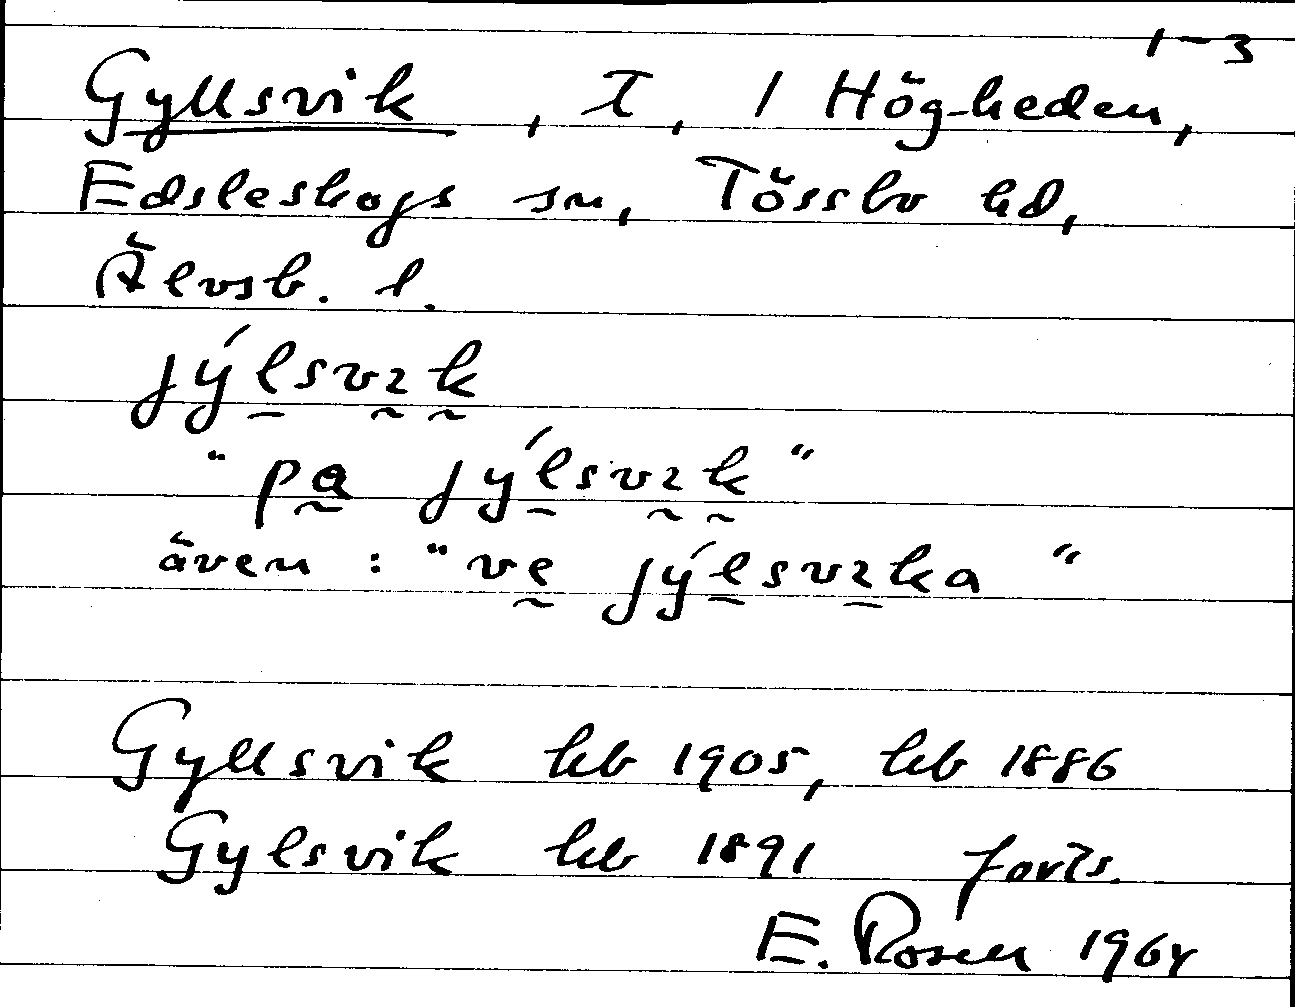 1-3
Gyllsvik, T, 1 Högheden,
Edsleskogs sn, Tössbo hd,
Älvsb. l.
jýlsvɪk
"pa jýlsvɪk"
även: "ve jýlsvɪka"
Gyllsvik kb 1905, kb 1886
Gylsvik kb 1891 forts.
E. Rosen 1964